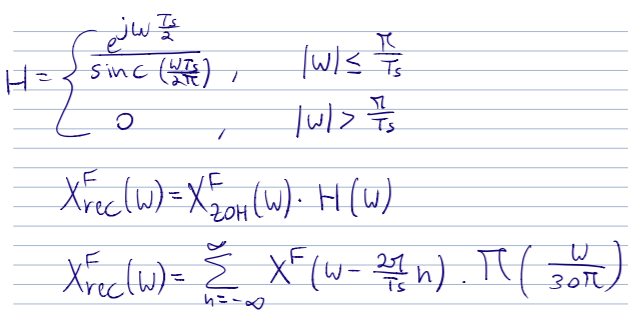 H = { e^{jω Ts/2} / sinc(ωTs/2π) , |ω| ≤ π/Ts
0 , |ω| > π/Ts
X^F_rec(ω) = X^F_ZOH(ω) · H(ω)
X^F_rec(ω) = ∑_{n=-∞}^{∞} X^F(ω - 2π/Ts n) · Π(ω/30π)